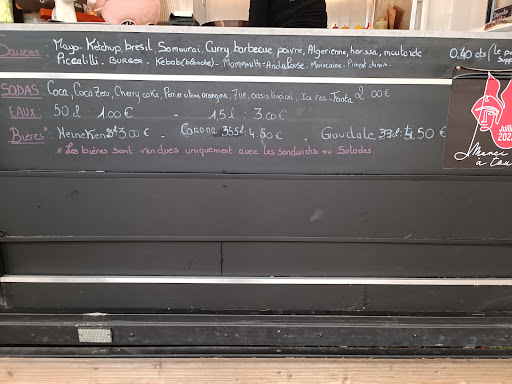 Sauces Mayo. Ketchup, bresil, Samourai, Curry, barbecue, poivre, Algerienne, harissa, moutarde 0.40 cts (le po
Piccalilli. BURGER - Kebab (blanche) - Mammouth - Andalouse - Marocaine - Piment chinois - supp
SODAS: Coca, Coca Zero, Cherry coke, Perrier citron, orangina, 7up, oasis tropical, Ice tea. Fanta 2.00€
EAUX: 50cl 1.00€ - 1,5l : 3.00€
Bières*: Heineken 3.00€ - Corona 35.5cl 4,50€ - Goudale 33cl 4,50€
* Les bières sont vendues uniquement avec les sandwichs ou Salades.
Juille
202
Merci
à tou